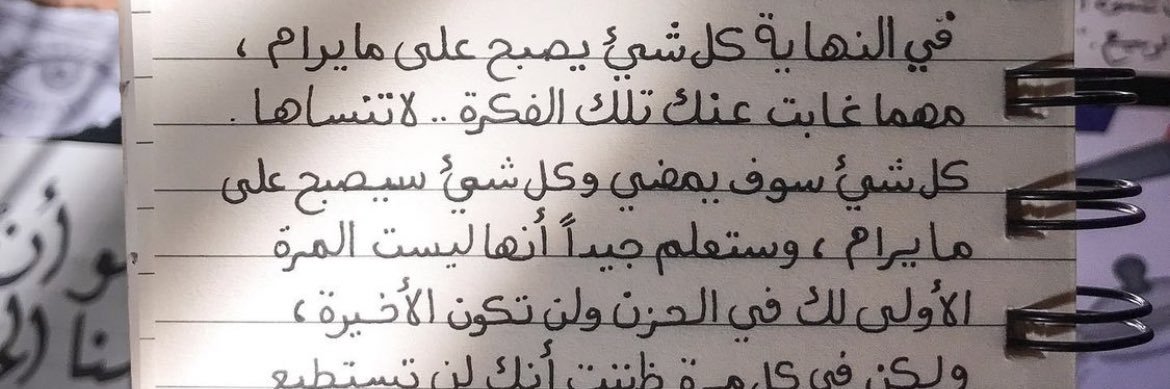 في النهاية كل شيئ يصبح على مايرام ،
مهما غابت عنك تلك الفكرة .. لاتنساها .
كل شيئ سوف يمضي وكل شيئ سيصبح على
مايرام ، وستعلم جيداً أنها ليست المرة
الأولى لك في الحزن ولن تكون الأخيرة ،
ولكن في كل مرة ظننت أنك لن تستطيع